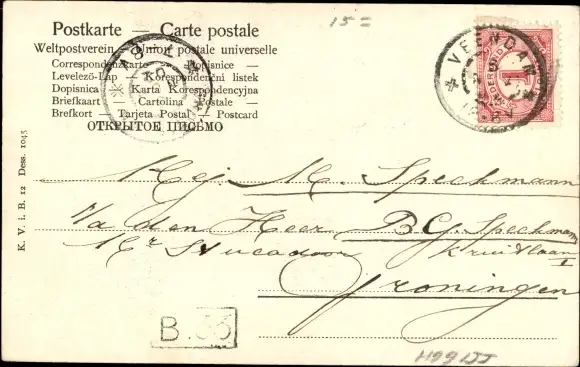 Postkarte — Carte postale
Weltpostverein — Union postale universelle
Correspondenzkarte — Dopisnice —
Levelező-Lap — Korespondenční listek
Dopisnica — Karta Korespondencyjna
Briefkaart — Cartolina Postale —
Brefkort — Tarjeta Postal — Postcard
ОТКРЫТОЕ ПИСЬМО
15 =
VEENDAM
1
K. V. i. B. 12 Dess. 1045
Mej. M. Speckmann
p/a den Heer B.G. Speckmann
Mr Stucadoor Kruitlaan
I
Groningen
B.33